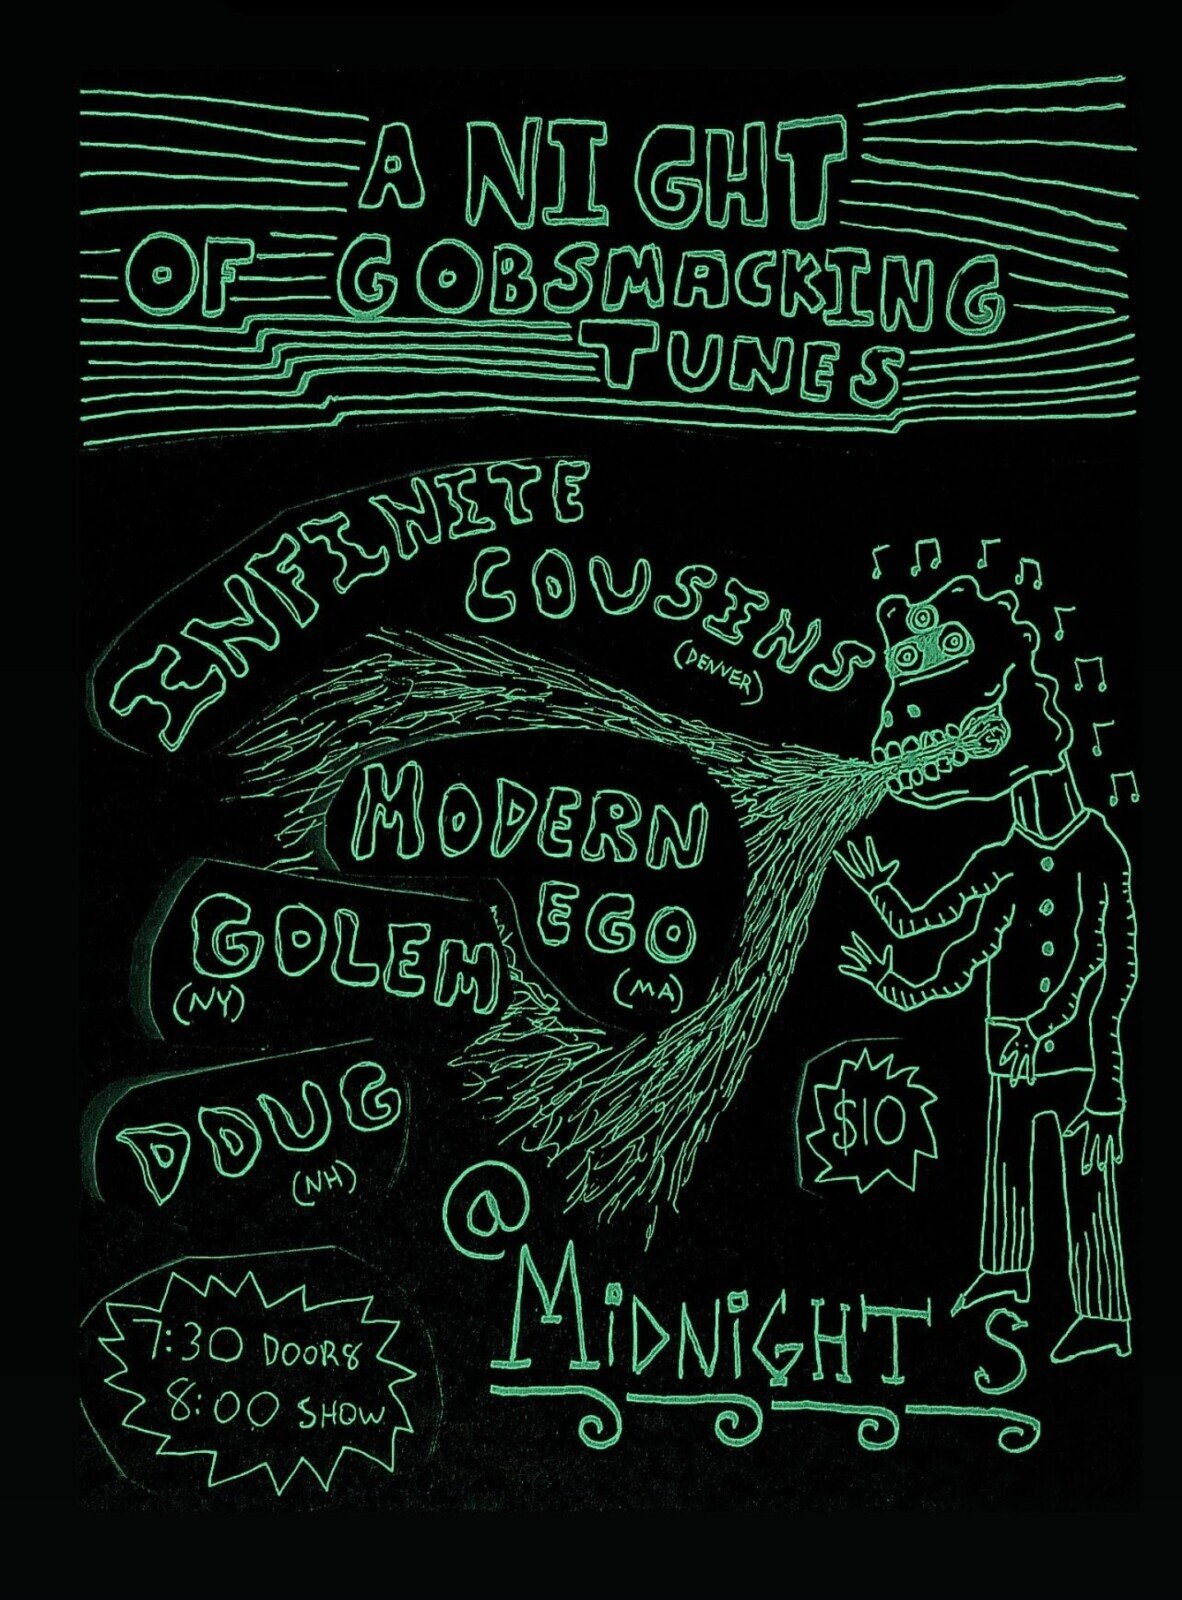 A NIGHT
OF GOBSMACKING
TUNES
INFINITE
COUSINS
(DENVER)
MODERN
EGO
(MA)
GOLEM
(NY)
DDUG
(NH)
$10
@
MIDNIGHT'S
7:30 DOORS
8:00 SHOW